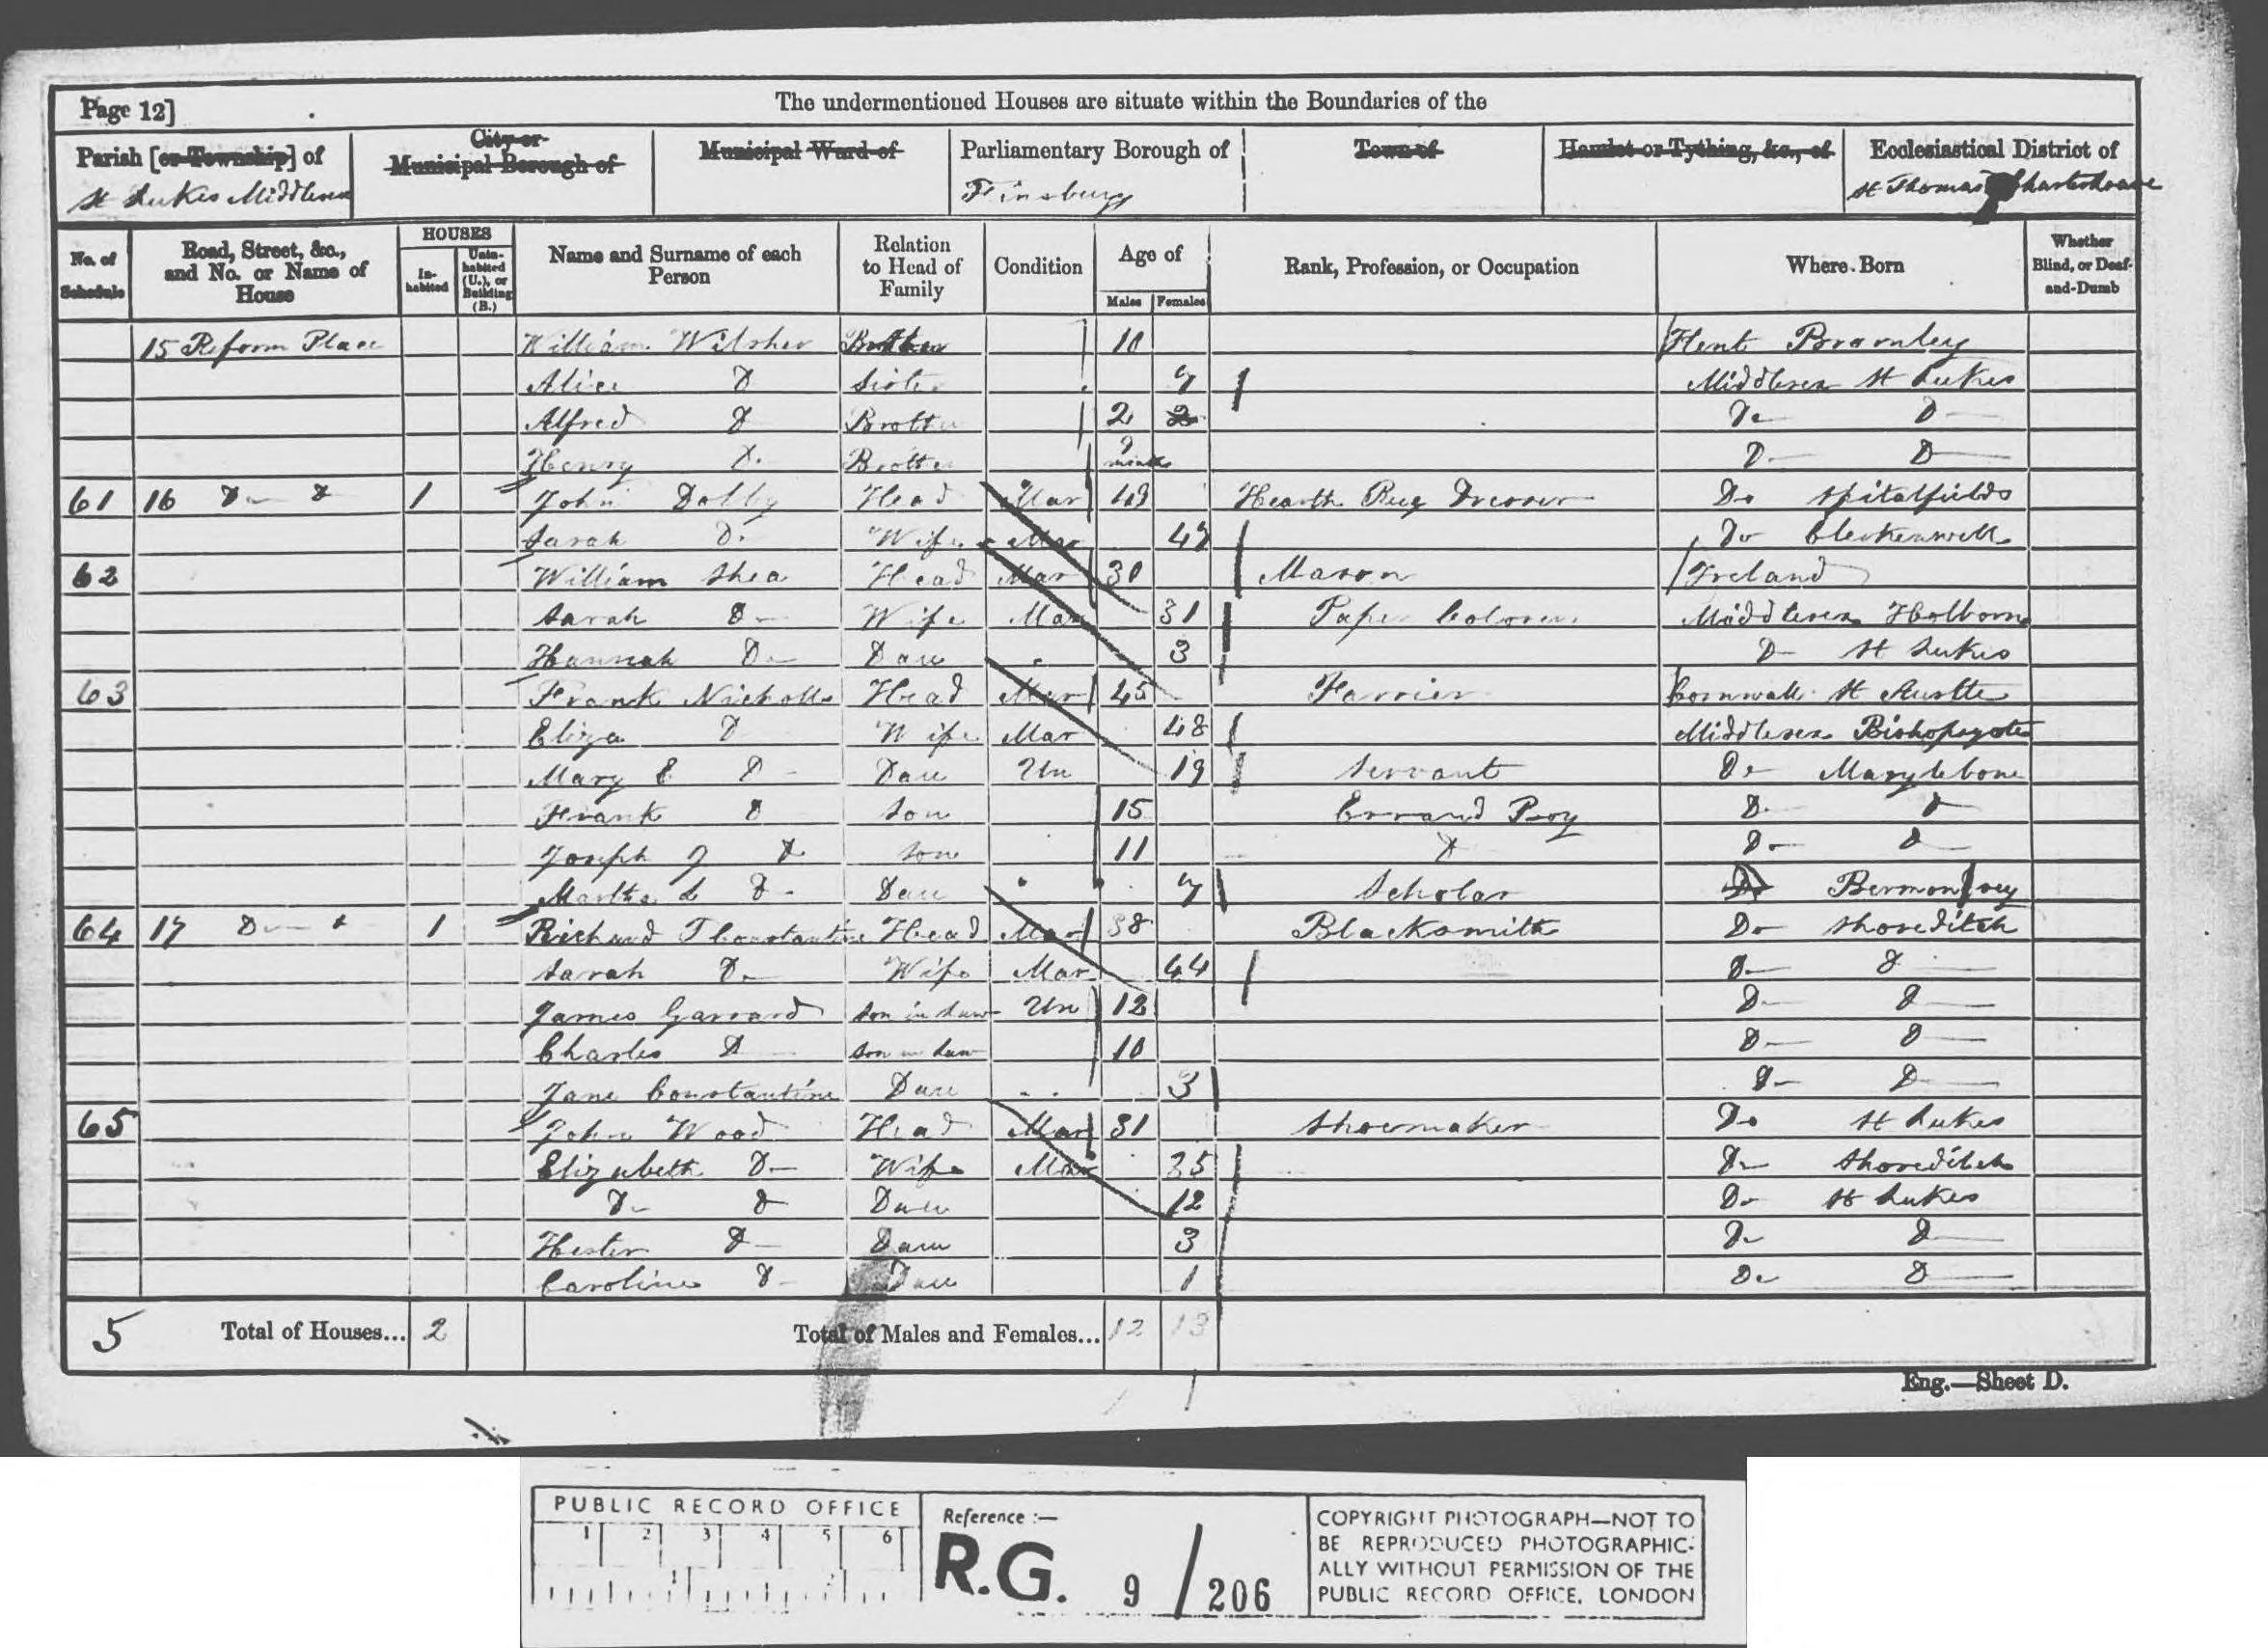 Page 12]
The undermentioned Houses are situate within the Boundaries of the
Parish [or Township] of
St Lukes Middlesex
City or
Municipal Borough of
Municipal Ward of
Parliamentary Borough of
Finsbury
Town of
Hamlet or Tything, &c., of
Ecclesiastical District of
St Thomas Charterhouse
No. of Schedule
Road, Street, &c., and No. or Name of House
HOUSES
In-habited
Unin-habited (U.), or Building (B.)
Name and Surname of each Person
Relation to Head of Family
Condition
Age of
Males
Females
Rank, Profession, or Occupation
Where Born
Whether Blind, or Deaf-and-Dumb
15 Reform Place William Wilsher Brother 10 Kent Bromley
Alice D Sister 7 Middlesex St Lukes
Alfred D Brother 2 2 Do D
Henry D. Brother 9 months D D
61 16 Do D 1 John Dolby Head Mar 49 Hearth Rug Dresser Do Spitalfields
Sarah D. Wife Mar 47 Do Clerkenwell
62 William Shea Head Mar 30 Mason Ireland
Sarah D Wife Mar 31 Paper Colourer Middlesex Holborn
Hannah Do Dau 3 D St Lukes
63 Frank Nicholls Head Mar 45 Farrier Cornwall St Austle
Eliza D Wife Mar 48 Middlesex Bishopsgate
Mary E D Dau Un 19 Servant Do Marylebone
Frank D Son 15 Errand Boy D D
Joseph J D Son 11 D Do D
Martha L D Dau 7 Scholar Do Bermondsey
64 17 Do D 1 Richard T Constantine Head Mar 38 Blacksmith Do Shoreditch
Sarah D Wife Mar 44 D D
James Garrard Son in Law Un 12 D D
Charles D Son in Law 10 D D
Jane Constantine Dau 3 D D
65 John Wood Head Mar 31 Shoemaker Do St Lukes
Elizabeth D Wife Mar 35 Do Shoreditch
Do D Dau 12 Do St Lukes
Hester D Dau 3 Do D
Caroline D Dau 1 Do D
5 Total of Houses... 2 Total of Males and Females... 12 13
Eng.—Sheet D.
PUBLIC RECORD OFFICE
1 2 3 4 5 6
Reference :—
R.G. 9 / 206
COPYRIGHT PHOTOGRAPH—NOT TO
BE REPRODUCED PHOTOGRAPHIC-
ALLY WITHOUT PERMISSION OF THE
PUBLIC RECORD OFFICE, LONDON